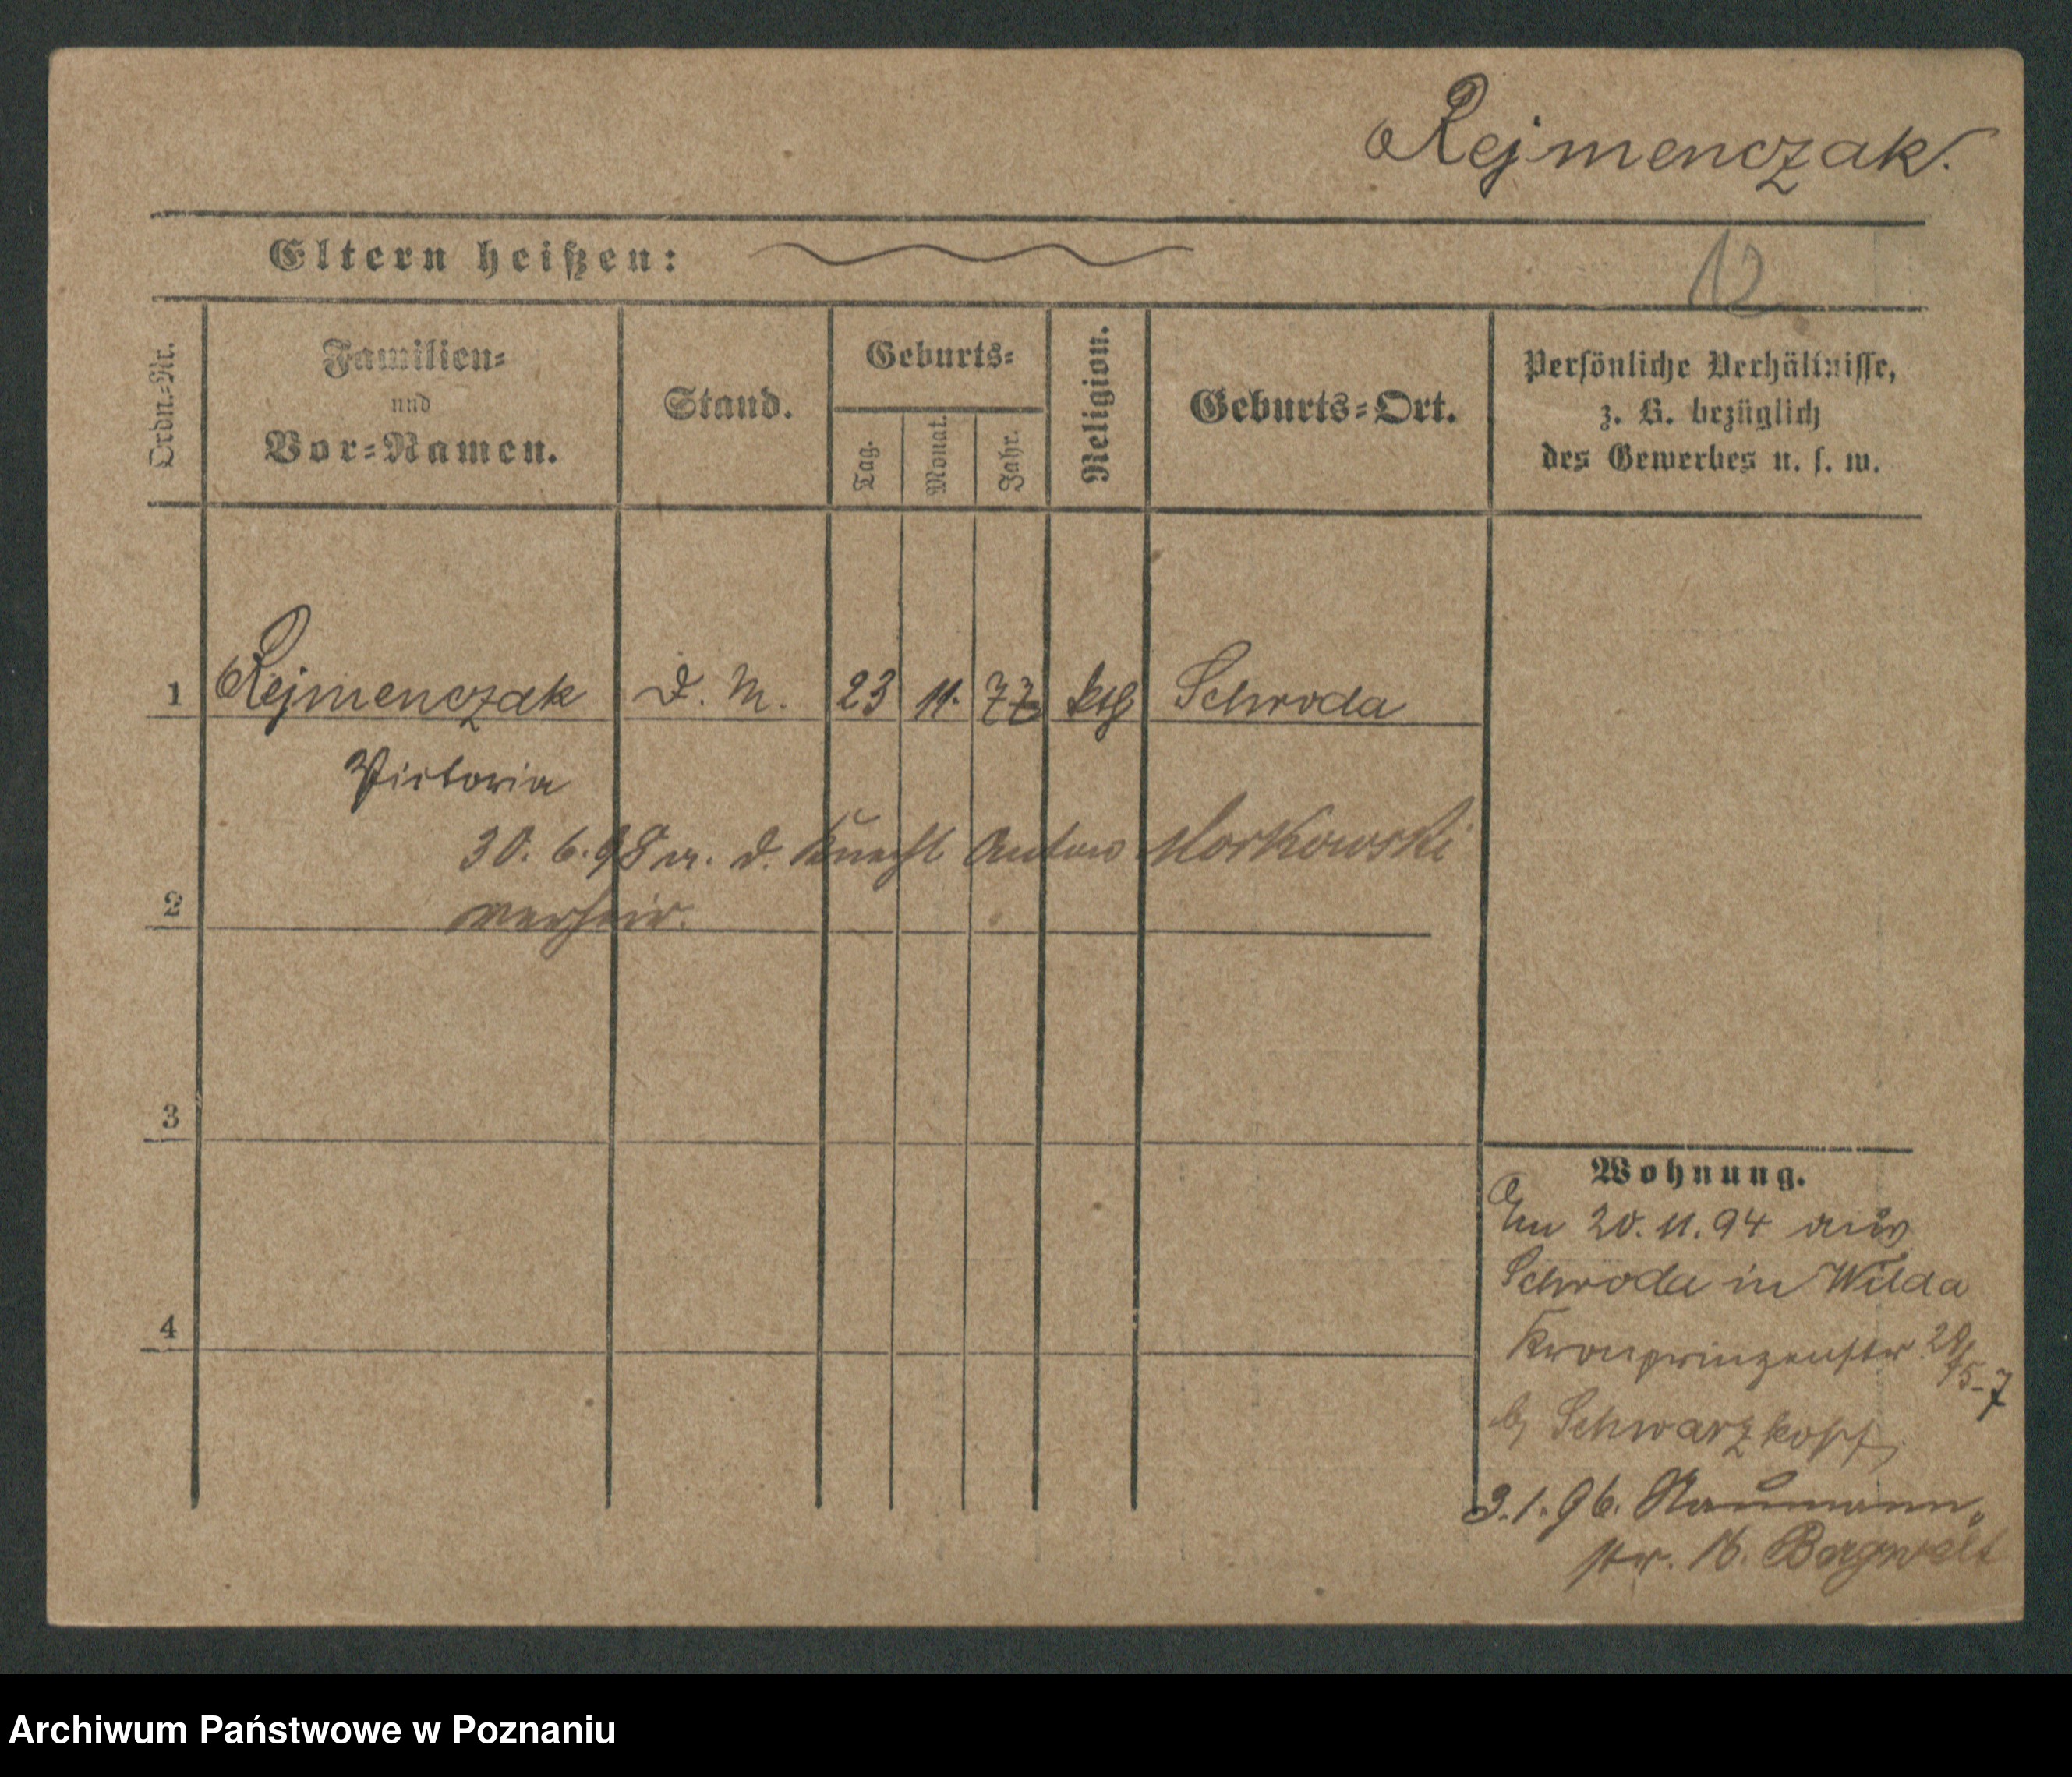 Rejmenczak.
Eltern heißen:
12
Ordn.=Nr.
Familien=
und
Vor=Namen.
Stand.
Geburts=
Tag.
Monat.
Jahr.
Religion.
Geburts=Ort.
Persönliche Verhältnisse,
z. B. bezüglich
des Gewerbes u. s. w.
1 Rejmenczak D. M. 23 11. 77 ktl Schroda
Victoria
30. 6. 98 m. d. Knecht Anton Morkowski
2 verheir.
3
4
Wohnung.
Am 20. 11. 94 aus
Schroda in Wilda
Kronprinzenstr.
b/ Schwarzkopf,
3. 1. 96. Naumann„
str. 16. Bergwelt
Archiwum Państwowe w Poznaniu